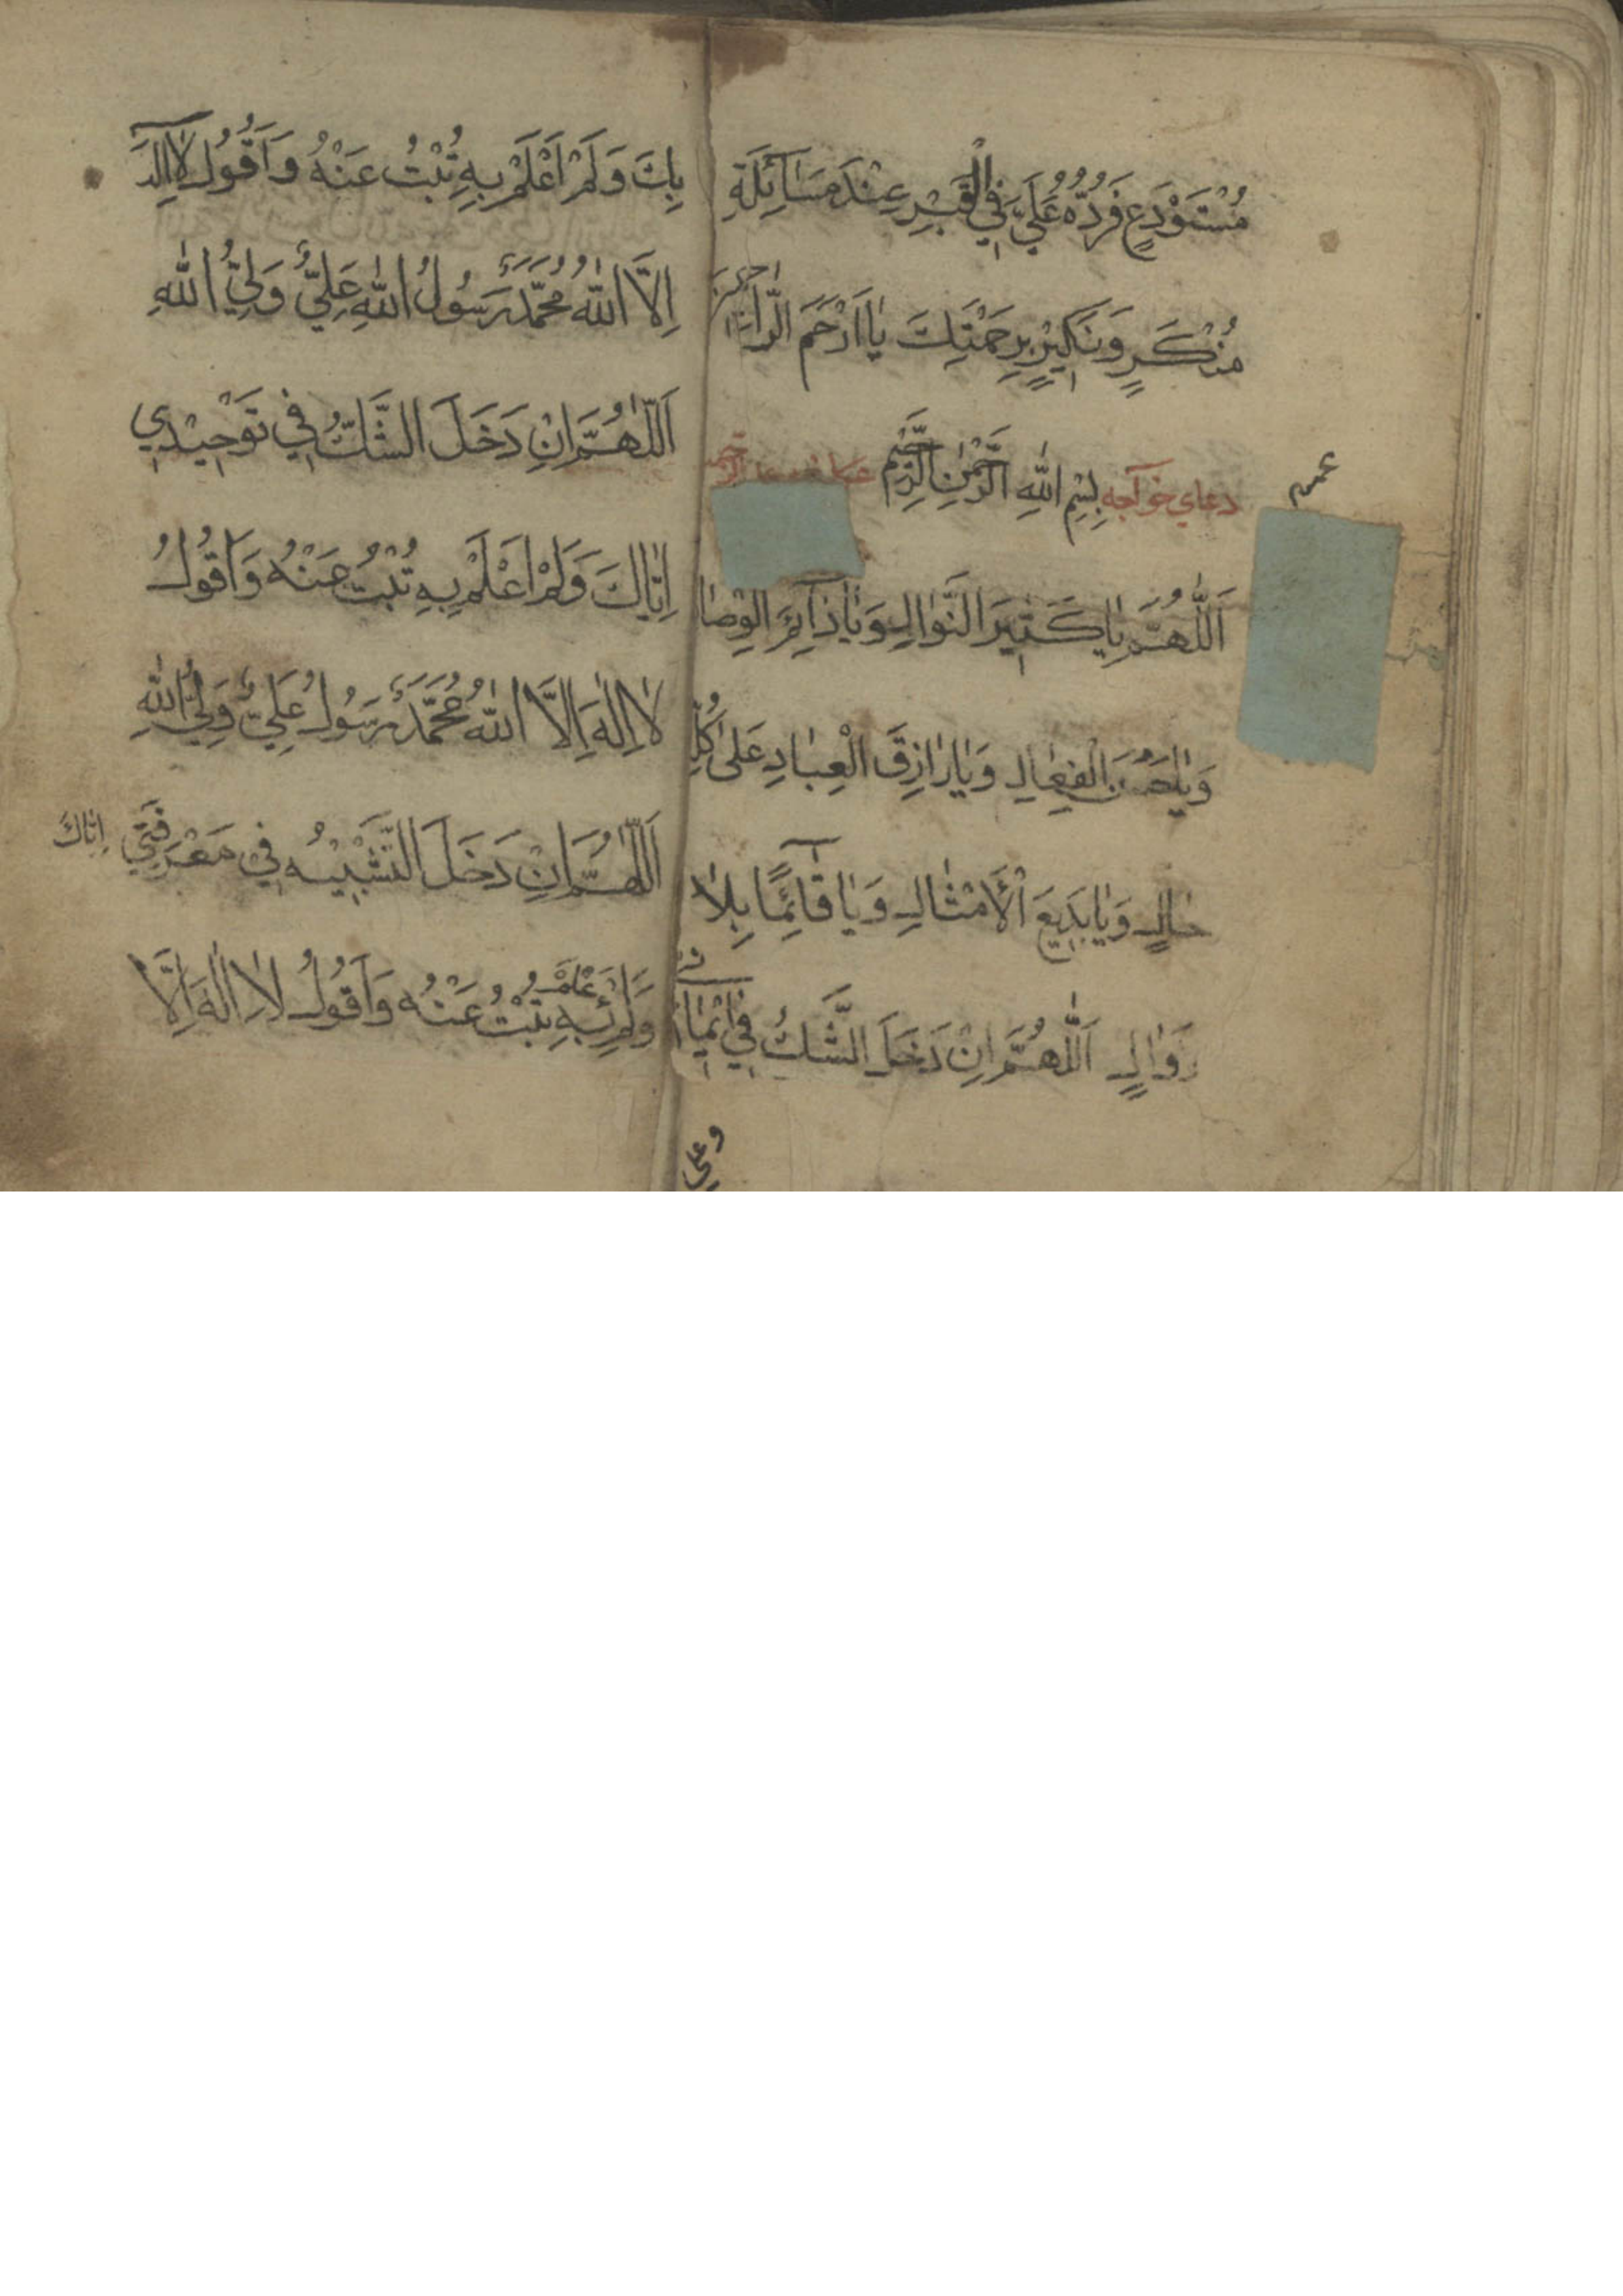 مُسْتَوْدَعٍ فَرُدَّهُ عَلَيَّ فِي الْقَبْرِ عِنْدَ مَسَآئِلَةِ
مُنْكَرٍ وَنَكِيْرٍ بِرَحْمَتِكَ يَا اَرْحَمَ الرَّاحِمِيْنَ
دعاي خوآجه بِسْمِ اللهِ الرَّحْمٰنِ الرَّحِيْمِ
اَللّٰهُمَّ يَا كَثِيْرَ النَّوَالِ وَيَا ذَآئِرَ الْوِصَا
وَيَا حَسَنَ الْفِعَالِ وَيَا رَازِقَ الْعِبَادِ عَلٰى كُلِّ
حَالٍ وَيَا بَدِيْعَ الْأَمْثَالِ وَيَا قَآئِمًا بِلَا
زَوَالٍ اَللّٰهُمَّ اِنْ دَخَلَ الشَّكُّ فِي اِيْمَانِي
وعلي
بِكَ وَلَمْ اَعْلَمْ بِهِ تُبْتُ عَنْهُ وَاَقُوْلُ لَا اِلٰهَ
اِلَّا اللّٰهُ مُحَمَّدٌ رَسُوْلُ اللّٰهِ عَلِيٌّ وَلِيُّ اللّٰهِ
اَللّٰهُمَّ اِنْ دَخَلَ الشَّكُّ فِي تَوْحِيْدِي
اِيَّاكَ وَلَمْ اَعْلَمْ بِهِ تُبْتُ عَنْهُ وَاَقُوْلُ
لَا اِلٰهَ اِلَّا اللّٰهُ مُحَمَّدٌ رَسُوْلُ عَلِيٌّ وَلِيُّ اللّٰهِ
اَللّٰهُمَّ اِنْ دَخَلَ التَّشْبِيْهُ فِي مَعْرِفَتِي اِيَّاكَ
وَلَمْ اَعْلَمْ بِهِ تُبْتُ عَنْهُ وَاَقُوْلُ لَا اِلٰهَ اِلَّا